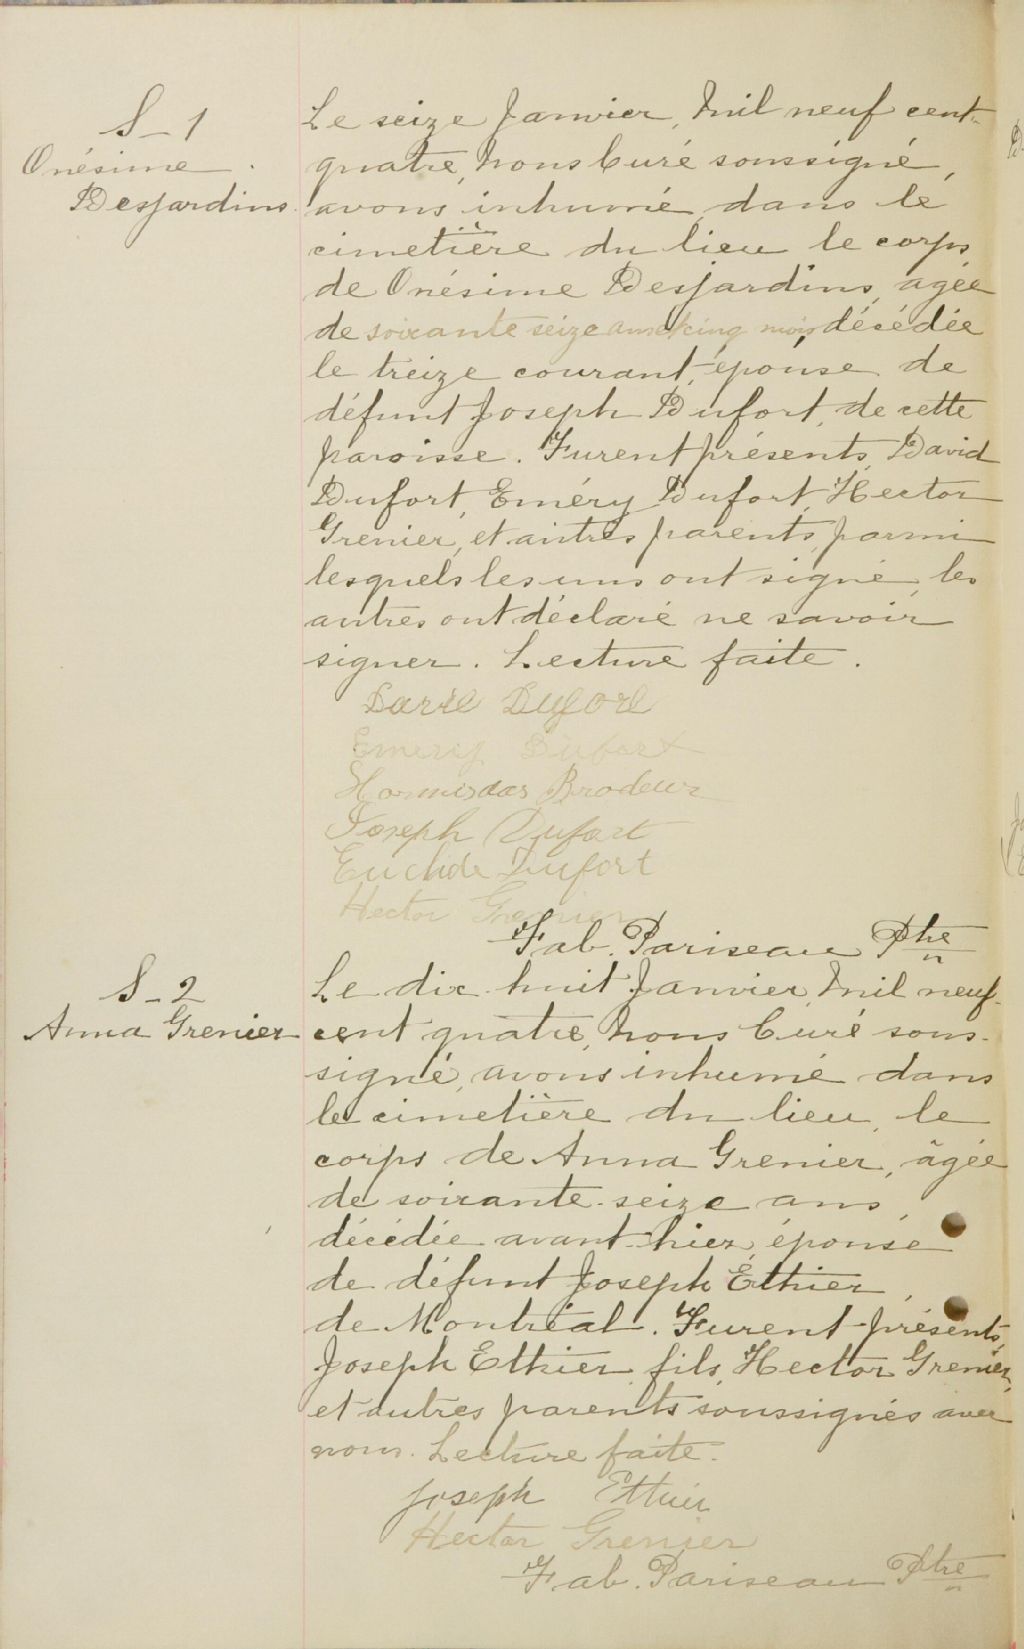 S-1
Onésime
Desjardins
Le seize Janvier, mil neuf cent-
quatre, nous Curé soussigné,
avons inhumé, dans le
cimetière du lieu le corps
de Onésime Desjardins, agée
de soixante seize ans & cinq mois, décédée
le treize courant, épouse de
défunt Joseph Dufort, de cette
paroisse. Furent présents, David
Dufort, Eméry Dufort, Hector
Grenier, et autres parents, parmi
lesquels les uns ont signé, les
autres ont déclaré ne savoir
signer. Lecture faite.
Dufort
Emery Dufort
Hormisdas Brodeur
Joseph Dufort
Euclide Dufort
Hector Grenier
Fab. Pariseau Ptre
S-2
Anna Grenier
Le dix-huit Janvier, mil neuf-
cent quatre, nous Curé sous-
signé, avons inhumé dans
le cimetière du lieu, le
corps de Anna Grenier, âgée
de soixante-seize ans,
décédée avant-hier, épouse
de défunt Joseph Ethier,
de Montréal. Furent présents,
Joseph Ethier, fils, Hector Grenier,
et autres parents soussignés avec
nous. Lecture faite.
Joseph Ethier
Hector Grenier
Fab. Pariseau Ptre